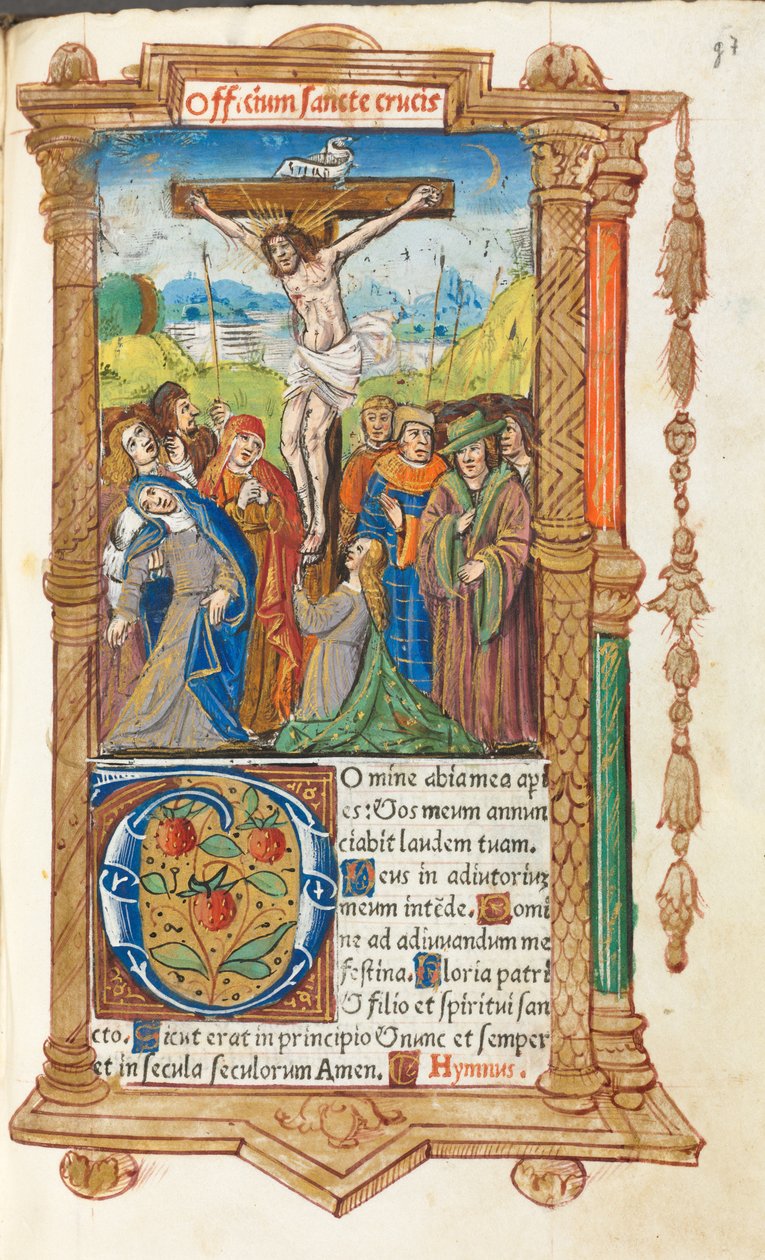 97
Officium sancte crucis
DO mine abia mea api
es: &os meum annun
ciabit laudem tuam.
Deus in adiutoriuz
meum intēde. Domi
ne ad adiuuandum me
festina. Gloria patri
& filio et spiritui san
cto. Sicut erat in principio &nunc et semper
et in secula seculorum Amen. Hymnus.